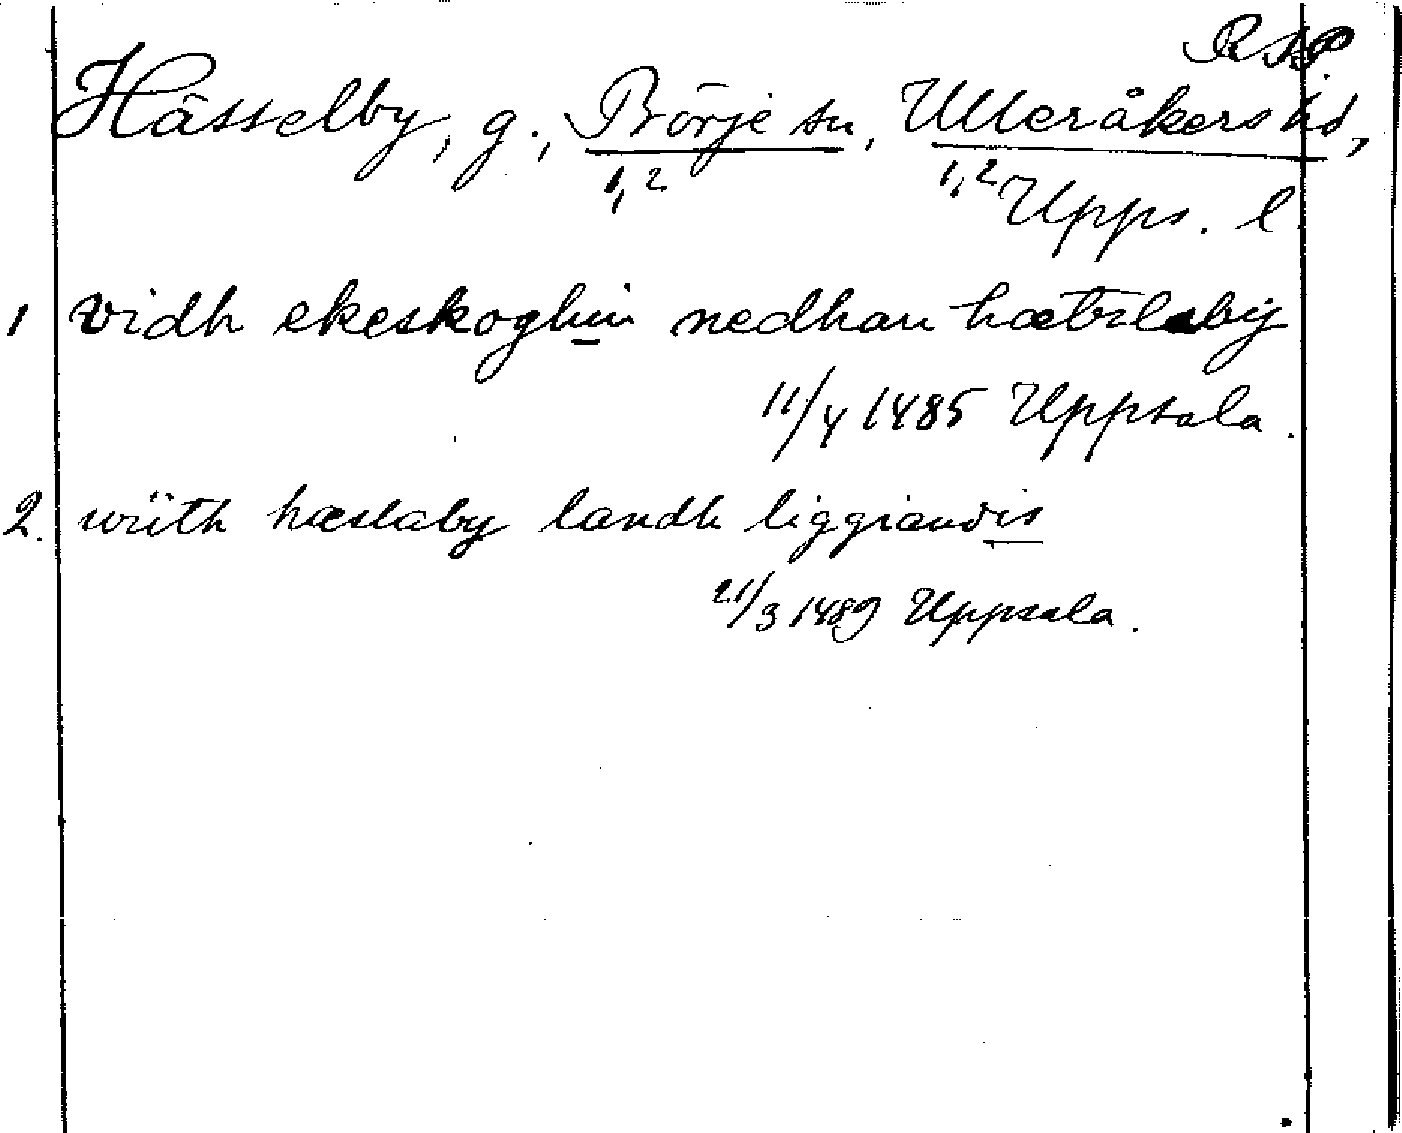 RAP
Hässelby, g., Börje sn, Ulleråkers hd,
1,2 1,2 Upps. l
1 vidh ekeskoghin nedhan hætzlaby
11/4 1485 Uppsala.
2. wiith hæslaby landh liggiandis
21/3 1489 Uppsala.